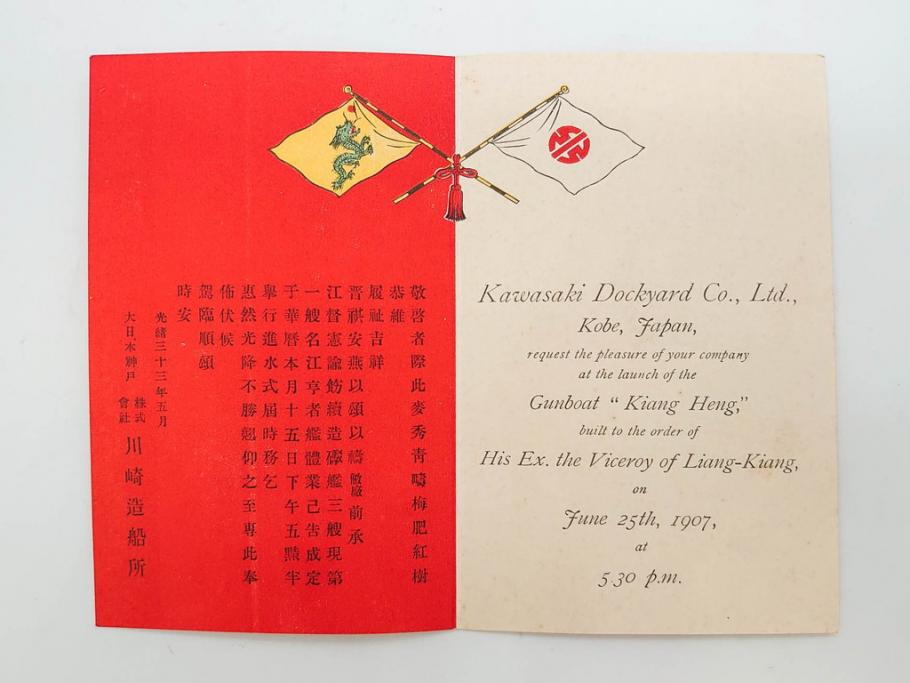 敬啓者際此麥秀靑疇梅肥紅樹
恭維
履祉吉祥
晋祺安燕以頌以禱敝廠前承
江督憲諭飭續造礮艦三艘現第
一艘名江亨者艦體業已告成定
于華曆本月十五日下午五點半
擧行進水式屆時務乞
惠然光降不勝翹仰之至專此奉
佈伏候
駕臨順頌
時安
光緒三十三年五月
大日本神戶 株式會社 川崎造船所
Kawasaki Dockyard Co., Ltd.,
Kobe, Japan,
request the pleasure of your company
at the launch of the
Gunboat “ Kiang Heng,”
built to the order of
His Ex. the Viceroy of Liang-Kiang,
on
June 25th, 1907,
at
5.30 p.m.